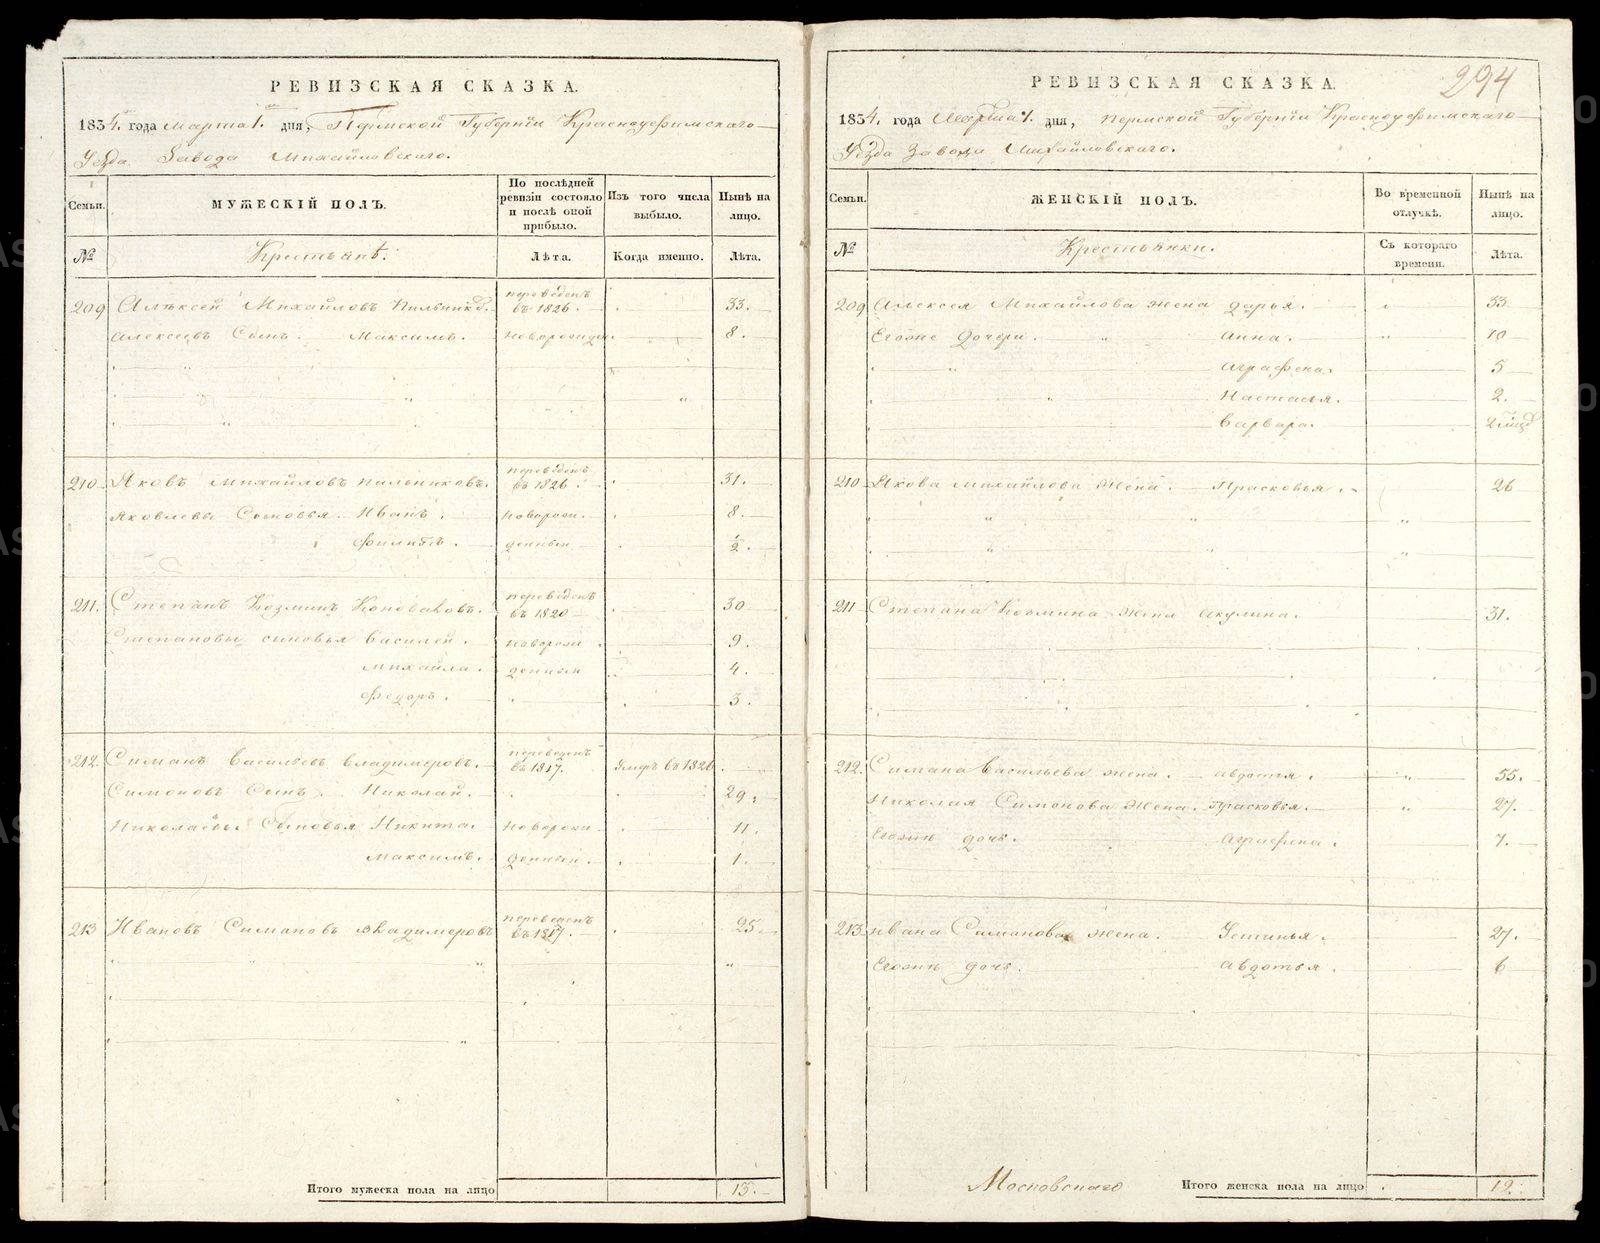 РЕВИЗСКАЯ СКАЗКА.
1834. года марта 1. дня, Пермской Губерніи Красноуфимскаго
Уѣзда Завода Михайловскаго.
Семьи. МУЖЕСКІЙ ПОЛЪ. По послѣдней ревизіи состояло и послѣ оной прибыло. Изъ того числа выбыло. Нынѣ на лицо.
№ Крестьянѣ. Лѣта. Когда именно. Лѣта.
209 Алѣксей Михайловъ Пильников. переведенъ въ 1826. 33.
Алексеевъ Сынъ. Максимъ. новорожден. 8.
210 Яковъ Михайловъ Пильниковъ. переведенъ въ 1826. 31.
Яковлевы Сыновья. Иванъ. новорож. 8.
Филипъ. денныи ½.
211. Степанъ Козминъ Коноваловъ. переведенъ въ 1820 30
Степановы сыновья Василей. новорож 9.
михайла. денныи 4.
Федоръ. 3.
212. Симанъ Васильевъ Владимеровъ. переведенъ въ 1817. Умѣръ въ 1826
Симоновъ Сынъ. Николай. 29.
Николаевы. Сыновья Никита. новорож 11.
максимъ. денныи. 1.
213 Ивановъ Симановъ Владимеровъ переведенъ въ 1817. 25.
Итого мужеска пола на лицо 13.
294
РЕВИЗСКАЯ СКАЗКА.
1834. года Марта 1. дня, Пермской Губерніи Красноуфимскаго
Уѣзда Завода Михайловскаго.
Семьи. ЖЕНСКІЙ ПОЛЪ. Во временной отлучкѣ. Нынѣ на лицо.
№ Крестьянки. Съ котораго времени. Лѣта.
209 Алексея Михайлова жена дарья. 33
Егоже дочери. анна. 10
аграфена. 5
Настасья. 2.
варвара.
210 Якова михайлова жена. Прасковья. 26
211 Степана Козмина жена акулина. 31.
212. Симана Васильева жена. авдотья. 55.
Николая Симонова жена. Прасковья. 27.
Егоже дочь. аграфена. 7.
213 ивана Симонова жена. Устинья. 27.
Егоже дочь. авдотья. 6
Московскаго Итого женска пола на лицо 12.